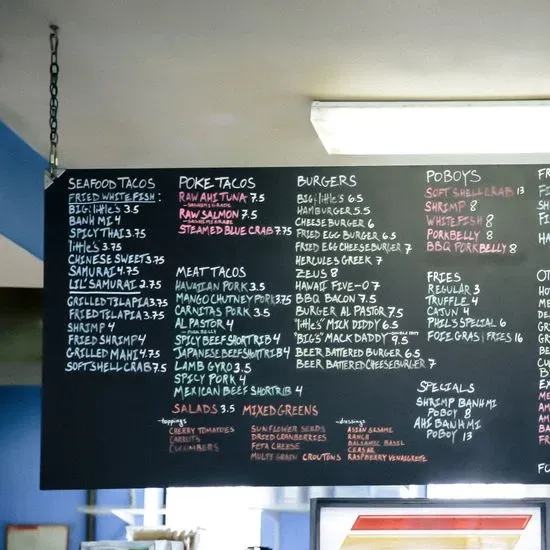 SEAFOOD TACOS
FRIED WHITE FISH:
BIG & little's 3.5
BANH MI 4
SPICY THAI 3.75
little's 3.75
CHINESE SWEET 3.75
SAMURAI 4.75
LIL' SAMURAI 2.75
GRILLED TILAPIA 3.75
FRIED TILAPIA 3.75
SHRIMP 4
FRIED SHRIMP 4
GRILLED MAHI 4.75
SOFT SHELL CRAB 7.5
POKE TACOS
RAW AHI TUNA 7.5
-SASHIMI GRADE
RAW SALMON 7.5
-SASHIMI GRADE
STEAMED BLUE CRAB 7.75
MEAT TACOS
HAWAIIAN PORK 3.5
MANGO CHUTNEY PORK 3.75
CARNITAS PORK 3.5
AL PASTOR 4
SPICY BEEF SHORT RIB 4
JAPANESE BEEF SHORT RIB 4
LAMB GYRO 3.5
SPICY PORK 4
MEXICAN BEEF SHORT RIB 4
BURGERS
BIG & little's 6.5
HAMBURGER 5.5
CHEESEBURGER 6
FRIED EGG BURGER 6.5
FRIED EGG CHEESEBURGER 7
HERCULES GREEK 7
ZEUS 8
HAWAII FIVE-O 7
BBQ BACON 7.5
BURGER AL PASTOR 7.5
"little's" MICK DIDDY 6.5
"BIG'S" MACK DADDY 9.5
BEER BATTERED BURGER 6.5
BEER BATTERED CHEESEBURGER 7
POBOYS
SOFT SHELL CRAB 13
SHRIMP 8
WHITEFISH 8
PORKBELLY 8
BBQ PORKBELLY 8
FRIES
REGULAR 3
TRUFFLE 4
CAJUN 4
PHIL'S SPECIAL 6
FOIE GRAS | FRIES 16
SPECIALS
SHRIMP BANH MI
POBOY 8
AHI BANH MI
POBOY 13
SALADS 3.5 MIXED GREENS
-toppings
CHERRY TOMATOES
CARROTS
CUCUMBERS
SUNFLOWER SEEDS
DRIED CRANBERRIES
FETA CHEESE
MULTI GRAIN CROUTONS
-dressings
ASIAN SESAME
RANCH
BALSAMIC BASIL
CEASAR
RASPBERRY VINAIGRETTE